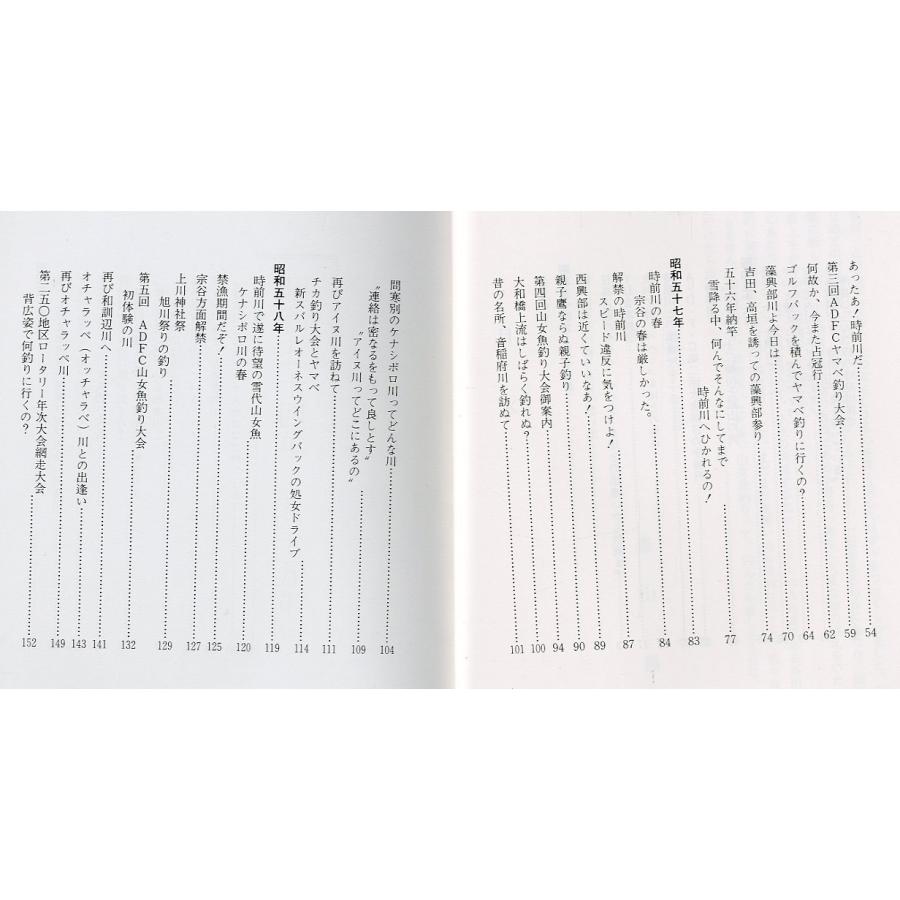 あったぁ！時前川だ……59
第三回ＡＤＦＣヤマベ釣り大会……62
何故か、今また占冠行……64
ゴルフバックを積んでヤマベ釣りに行くの？……70
藻興部川よ今日は……
吉田、高垣を誘っての藻興部参り……74
五十六年納竿
雪降る中、何んでそんなにしてまで
時前川へひかれるの！……77
昭和五十七年……83
時前川の春
宗谷の春は厳しかった。……84
解禁の時前川
スピード違反に気をつけよ！……87
西興部は近くていいなあ！……89
親子鷹ならぬ親子釣り……90
第四回山女魚釣り大会御案内……94
大和橋上流はしばらく釣れぬ？……100
昔の名所、音稲府川を訪ぬ……101
問寒別のケナシポロ川ってどんな川……104
“連絡は密なるをもって良しとす”
“アイヌ川ってどこにあるの”……109
再びアイヌ川を訪ねて……111
チカ釣り大会とヤマベ
新スバルレオーネスウイングバックの処女ドライブ……114
昭和五十八年……119
時前川で遂に待望の雪代山女魚
ケナシポロ川の春……120
禁漁期間だぞ！……125
宗谷方面解禁……127
上川神社祭
旭川祭りの釣り……129
第五回　ＡＤＦＣ山女魚釣り大会
初体験の川……132
再び和訓辺川へ……141
オチャラッペ（オッチャラペ）川との出逢い……143
再びオチャラッペ川……149
第二五〇地区ロータリー年次大会網走大会
背広姿で何釣りに行くの？……152